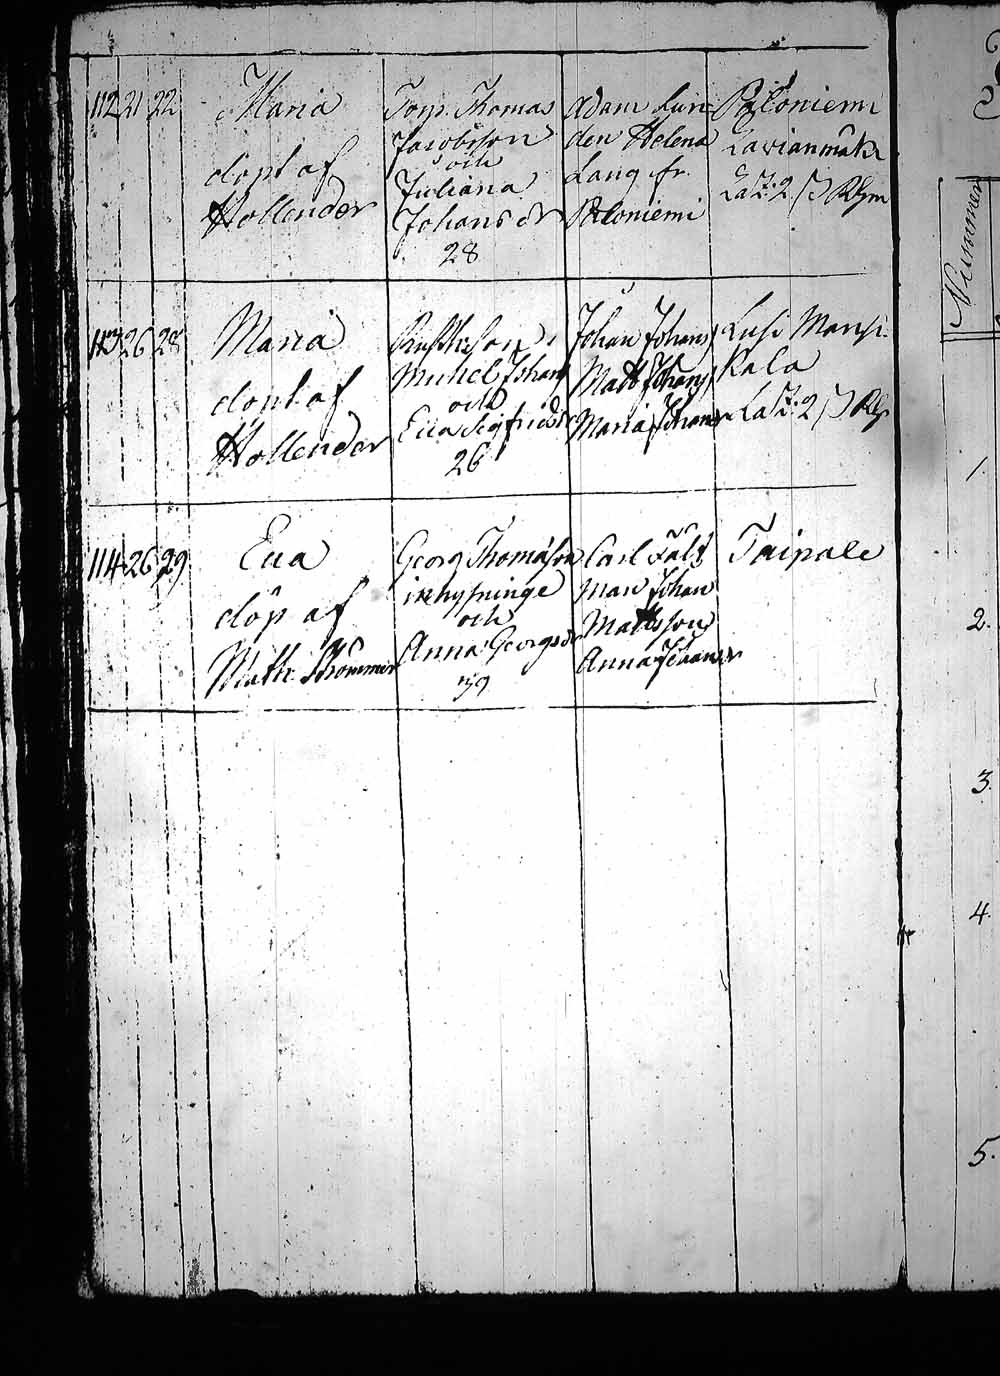 112 21 22
Maria
döpt af
Hollender
Torp. Thomas
Jacobsson
och
Juliana
Johansdr
28
Adam Lun
den Helena
Lang fr.
Paloniemi
Paloniemi
Lavianmäki
113 26 28
Maria
döpt af
Hollender
Michel Johans
och
Eva Sigfridsdr
26
Johan Johans
Matts Johans
Maria Johansdr
Lusi Mansi
Kala
114 26 29
Eua
döp af
Math. Strömmer
Georg Thomasson
inhysninge
och
Anna Georgsdr
Carl Fält
Man Johan
Mattsson
Anna Johansdr
Taipale
Nummer
1.
2.
3.
4.
5.